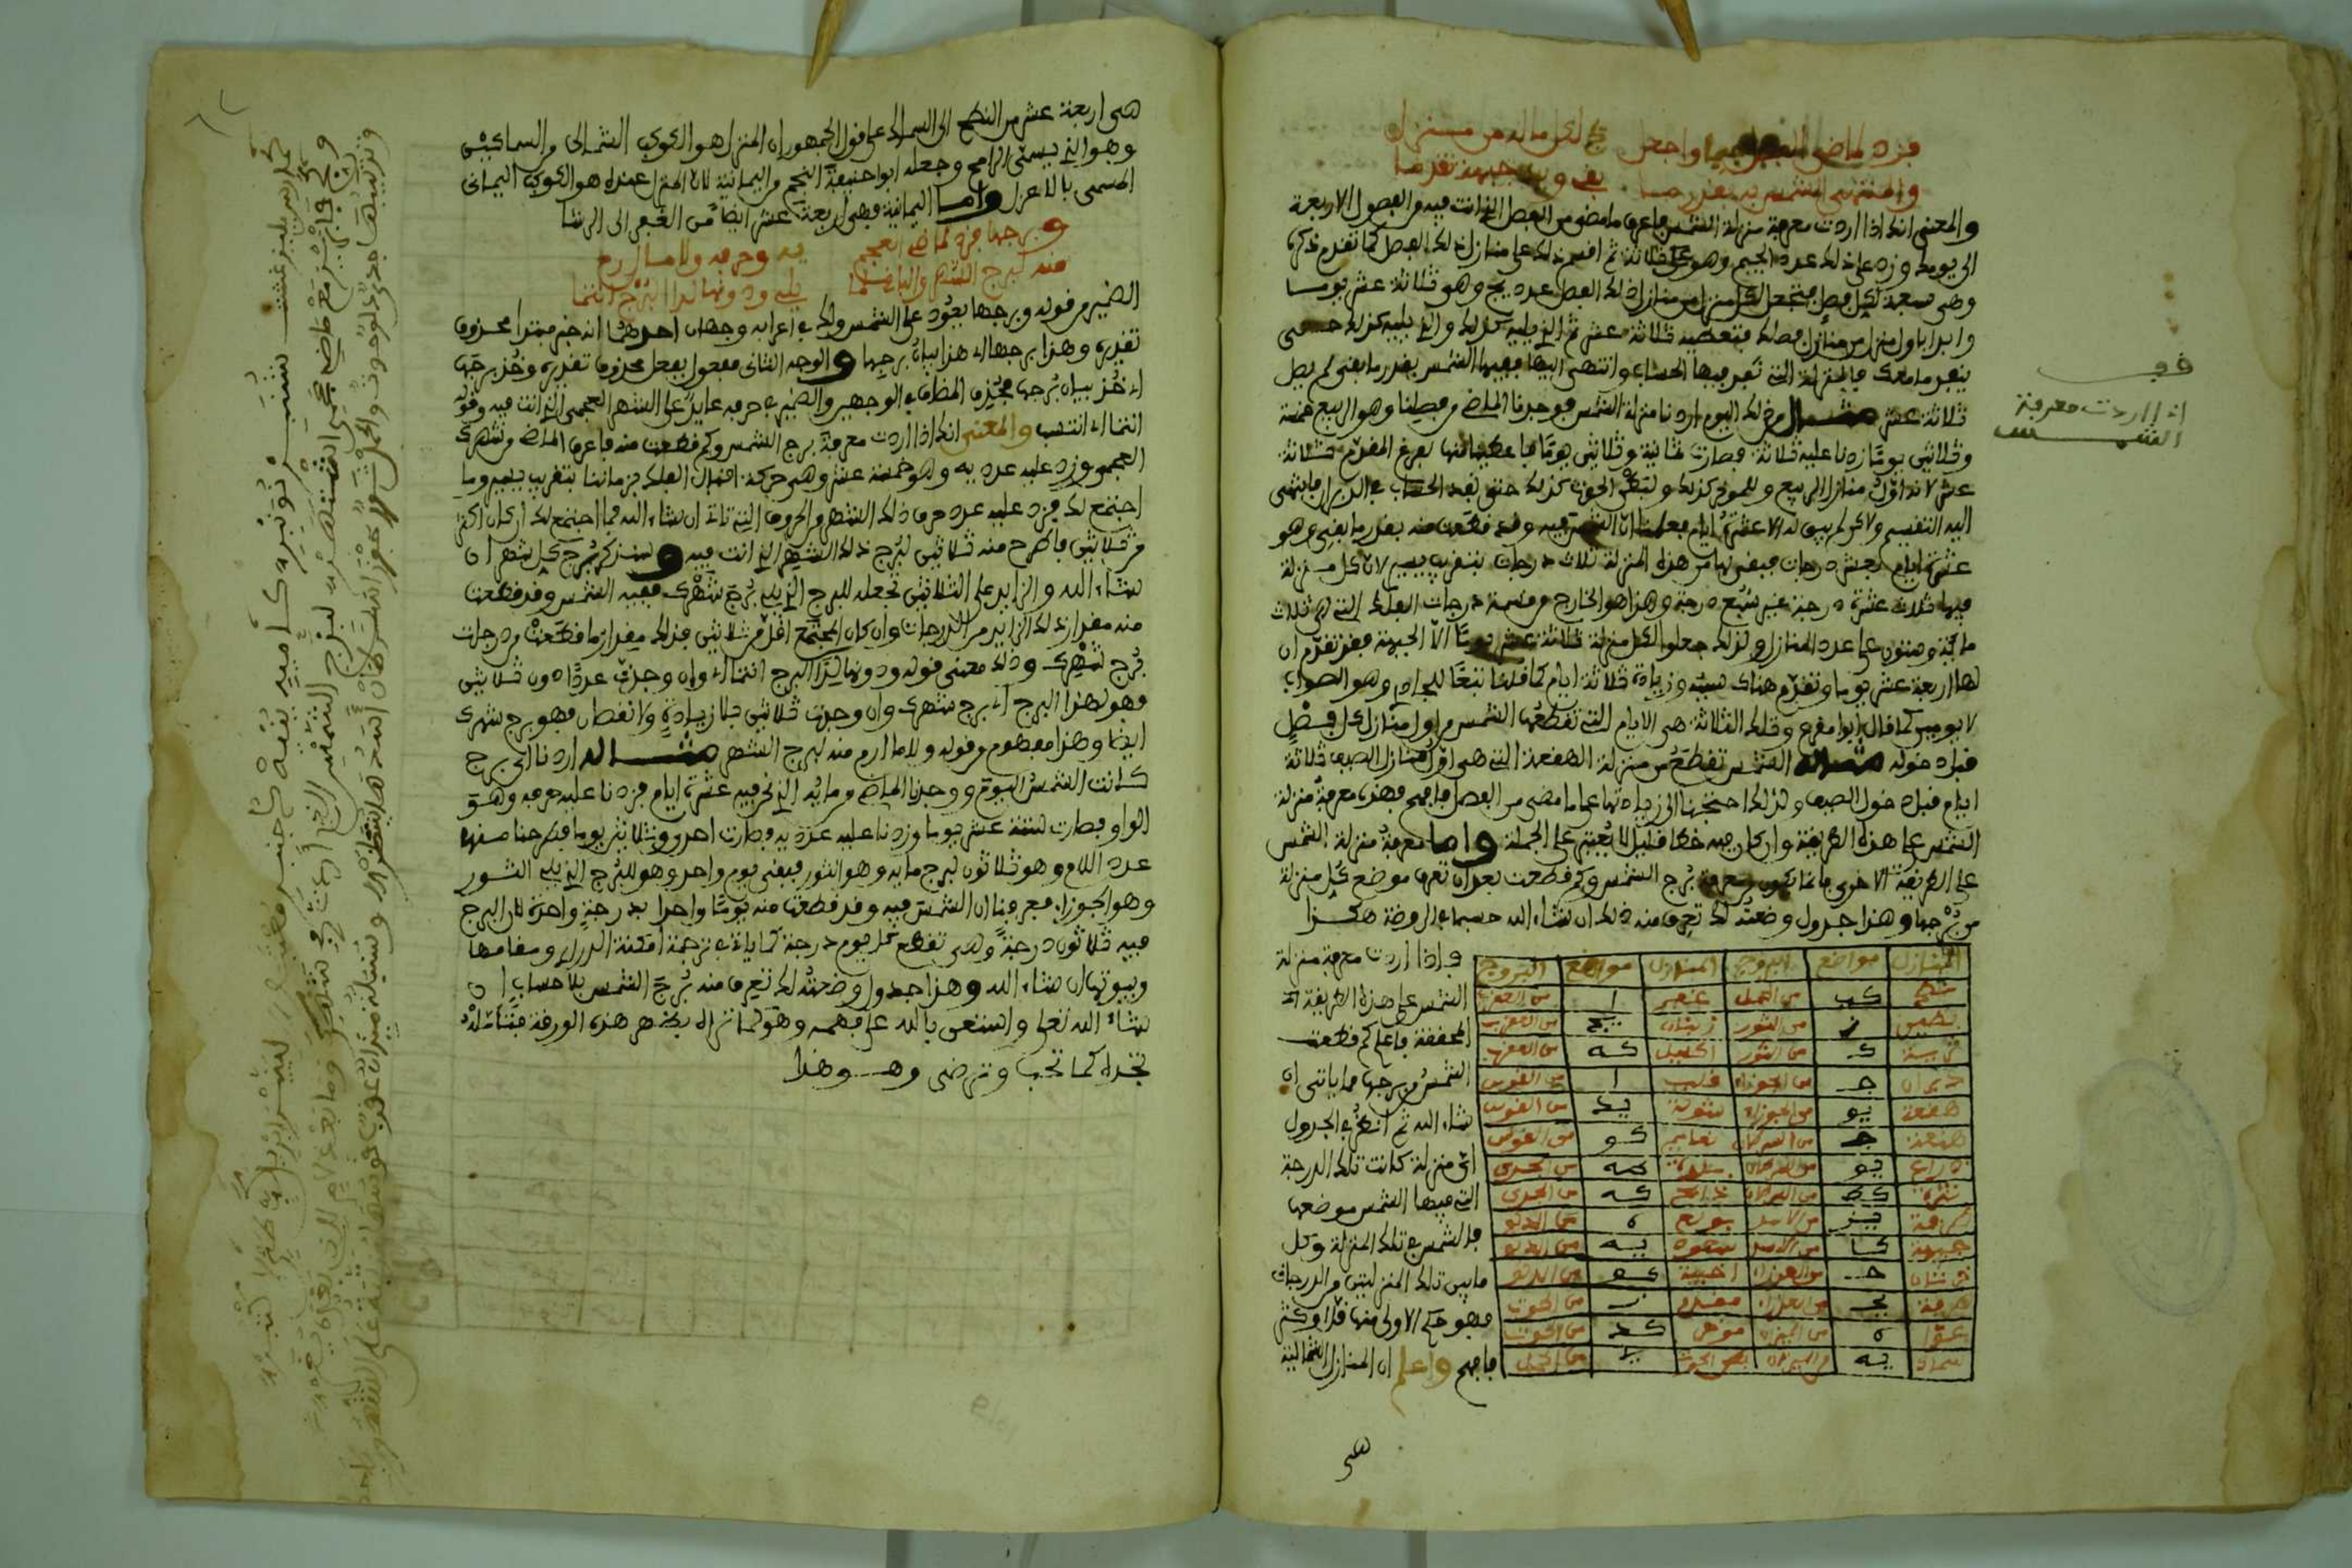 فزد لماضي الفصل جيما واجعل
يج لكل ماله من منزل
والمنتهى الشمس به بقدر ما
بقي وزد جبهة تقدما
والمعنى انك اذا اردت معرفة منزلة الشمس فاعرف ما مضى من الفصل الذي انت فيه من الفصول الاربعة
الى يومك وزد على ذلك عدد الجيم وهو ثلاثة ثم اقسم ذلك على منازل ذلك الفصل كما تقدم ذكرها
وهي سبعة لكل فصل فتجعل لكل منزل من منازل ذلك الفصل عدد يج وهو ثلاثة عشر يوما
وابدا باول منزل من منازل فصلك فتعطيه ثلاثة عشر ثم الذي يليه كذلك والذي يليه كذلك حتى
ينفد ما معك فالمنزلة التي نفد فيها الحساب وانتهى اليها ففيها الشمس بقدر ما بقي لم يصل
ثلاثة عشر مثال من ذلك اليوم اردنا منزلة الشمس فوجدنا الماضي من فصلنا وهو الربيع خمسة
وثلاثين يوما زدنا عليه ثلاثة فصارت ثمانية وثلاثين يوما فاعطينا منها لفرغ المقدم ثلاثة
عشر لانه اول منازل الربيع وللموخر كذلك ولبطن الحوت كذلك حتى نفد الحساب
اليه التقسيم ولاكن لم يبق له الا عشرة ايام فعلمنا ان الشمس فيه وقد قطعت منه بقدر ما بقي وهو
عشرة ايام بعشر درجات فبقي لها من هذه المنزلة ثلاث درجات بتقريب يسير لان كل منزلة
فيها ثلاث عشرة درجة غير سبع درجة وهذا هو الخارج من قسمة درجات الفلك التي هي ثلاث
ماية وستون على عدد المنازل ولذلك جعلوا لكل منزلة ثلاثة عشر يوما الا الجبهة فقد تقدم ان
لها اربعة عشر يوما وتقدم هناك سببه وزيادة ثلاثة ايام كما قلنا تبعا للجادري وهو الصواب
لا يومين كما قال ابو مقرع وتلك الثلاثة هي الايام التي تقطعها الشمس من اول منازل كل فصل
قبل دخوله مثاله الشمس تقطع من منزلة الهقعة التي هي اول منازل الصيف ثلاثة
ايام قبل دخول الصيف ولذلك احتجنا الى زيادتها على ما مضى من الفصل فافهم فهذه معرفة منزلة
الشمس على هذه الطريقة وان كان فيه خطا قليل لا يعتبر على الجملة واما معرفة منزلة الشمس
على الطريقة الاخرى فانما تكون بمعرفة برج الشمس وكم قطعت بعد ان تعرف موضع كل منزلة
من برجها وهذا جدول وضعته لك تعرف منه ذلك ان شاء الله حسبما في الروضة هكذا
المنازل مواضع البروج المنازل مواضع البروج
نطح كب من الحمل غفر ا من العقرب
بطين ز من الثور زبنان يج من العقرب
ثريا ك من الثور اكليل كه من العقرب
دبران ج من الجوزاء قلب ا من القوس
هقعة يو من الجوزاء شولة يد من القوس
هنعة ج من السرطان نعايم كو من القوس
ذراع يو من السرطان بلدة من الجدي
نثرة كط من السرطان ذابح كه من الجدي
طرفة يز من الاسد بولع ه من الدلو
جبهة كا من الاسد سعود يه من الدلو
خرثان ح من العذراء اخبية كو من الدلو
صرفة يج من العذراء مقدم ز من الحوت
عوا ه من الميزان موخر كد من الحوت
سماك يه من الميزان بطن الحوت من الحمل
واذا اردت معرفة منزلة
الشمس على هذه الطريقة
المحققة فاعلم كم قطعت
الشمس من برجها مما ياتي ان
شاء الله ثم انظر في الجدول
اي منزلة كانت تلك الدرجة
التي فيها الشمس موضعها
فالشمس في تلك المنزلة وكل
ما بين تلك المنزلتين من الدرجات
فهو حكم الاولى منها قل او كثر
فافهم واعلم ان المنازل الشمالية
هي
اذا اردت معرفة
الشمس
هي اربعة عشر من النطح الى السماك على قول الجمهور ان المنزل هو الكوكب الشمالي من السماكين
وهو الذي يسمى الرامح وجعله ابو حنيفة النجم من اليمانية لان المنزل عنده هو الكوكب اليماني
المسمى بالاعزل واما اليمانية فهي اربعة عشر ايضا من الغفر الى الرشا
وبرجها فزد لماضي العجم
يه وحرفه ولاما ارم
منه لبرج الشهر والباقي لما
يليه ودونها لذا البرج انتما
الضمير من قوله وبرجها يعود على الشمس ولك في اعرابه وجهان احدهما انه خبر مبتدا محذوف
تقديره وهذا برجها اي هذا بيان برجها والوجه الثاني مفعول بفعل محذوف تقديره وخذ برجها
اي خذ بيان برجها فحذف المضاف في الوجهين والضمير في حرفه عايد على الشهر العجمي الذي انت فيه وقوله
انتما اي انتسب والمعنى انك اذا اردت معرفة برج الشمس وكم قطعت منه فاعرف الماضي من شهرك
العجمي وزد عليه عدد يه وهو خمسة عشر وهي حركة اقبال الفلك في زماننا بتقريب يسير وما
اجتمع لك فزد عليه عدد حرف ذلك الشهر والحروف التي تاتي ان شاء الله فما اجتمع لك ان كان اكثر
من ثلاثين فاطرح منه ثلاثين لبرج ذلك الشهر الذي انت فيه وسنذكر برج كل شهر ان
شاء الله والزايد على الثلاثين تجعله للبرج الذي يلي برج شهرك ففيه الشمس وقد قطعت
منه مقدار ذلك الزايد من الدرجات وان كان المجتمع اقل من ثلاثين فذلك مقدار ما قطعت من درجات
برج شهرك وذلك معنى قوله ودونها لذا البرج انتما اي وان وجدت عددا دون ثلاثين
فهو لهذا البرج اي برج شهرك وان وجدت ثلاثين بلا زيادة ولا نقصان فهو برج شهرك
ايضا وهذا مفهوم من قوله ولاما ارم منه لبرج الشهر مثاله اردنا اي برج
كانت الشمس اليوم ووجدنا الماضي من مايه الذي نحن فيه عشرة ايام فزدنا عليه حرفه وهو
الواو فصارت ستة عشر يوما وزدنا عليه عدد يه فصارت احد وثلاثين يوما فطرحنا منها
عدد اللام وهو ثلاثون لبرج مايه وهو الثور فبقي يوم واحد وهو للبرج الذي يلي الثور
وهو الجوزاء فعرفنا ان الشمس فيه وقد قطعت منه يوما واحدا بدرجة واحدة لان البرج
فيه ثلاثون درجة وهي تقطع كل يوم درجة كما ياتي في ترجمة امكنة الدراري ومقامها
وبيوتها ان شاء الله وهذا جدول وضعته لك تعرف منه برج الشمس بلا حساب ان
شاء الله تعلى واستعن بالله على فهمه وهو كما تراه بظهر هذه الورقة فتامله
تجده كما تحب وترضى وهو هذا